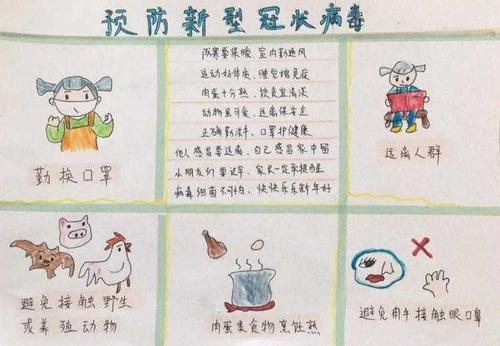 预防新型冠状病毒
防寒要保暖、室内勤通风
运动好体质、睡觉增免疫
肉蛋十分熟、饮食宜清淡
动物虽可爱、远离保安全
正确勤洗手、口罩护健康
他人感冒要远离、自己感冒家中留
小朋友们要记牢、家长一定承提醒
病毒细菌不可怕、快快乐乐新年好
勤换口罩
远离人群
避免接触野生
或养殖动物
肉蛋类食物烹饪熟
避免用手接触眼口鼻